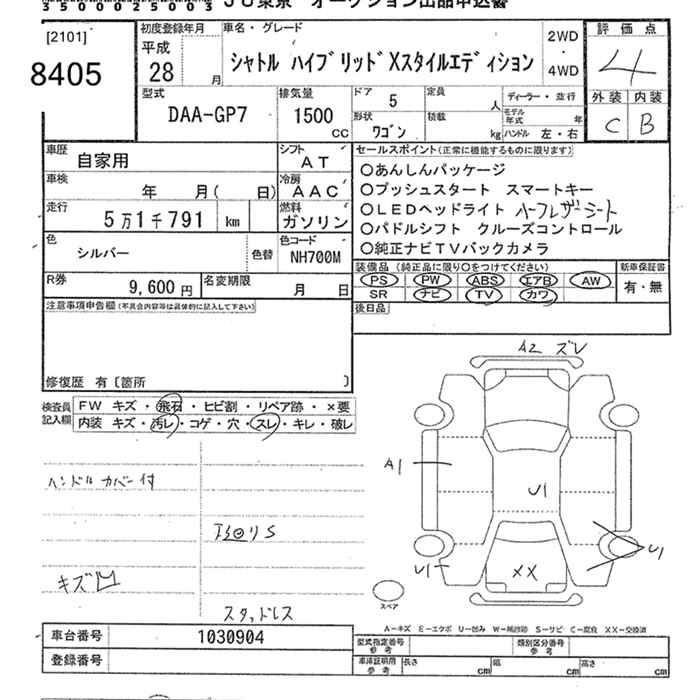 350000002500З
JU東京 オークション出品申込書
[2101]
8405
初度登録年月
平成
28 月
車名・グレード
シャトル ハイブリッドXスタイルエディション
2WD
・
4WD
評価点
4
外装 内装
C B
型式
DAA-GP7
排気量
1500
cc
ドア
5
形状
ワゴン
定員
人
積載
kg
ディーラー・並行
モデル年式
年
ハンドル 左・右
車歴
自家用
シフト
AT
車検
年 月( 日)
冷房
AAC
走行
5万1千791 km
燃料
ガソリン
色
シルバー
色替
色コード
NH700M
R券
9,600円
名変期限
月 日
セールスポイント(正常に機能するものに限ります)
○あんしんパッケージ
○プッシュスタート スマートキー
○LEDヘッドライト ハーフレザーシート
○パドルシフト クルーズコントロール
○純正ナビTVバックカメラ
装備品(純正品に限り○をつけてください)
PS PW ABS エアB AW
SR ナビ TV カワ
新車保証書
有・無
後日品
注意事項申告欄(不具合内容等は具体的に記入して下さい)
修復歴 有〔箇所 〕
検査員
記入欄
FW キズ・飛石・ヒビ割・リペア跡・×要
内装 キズ・汚レ・コゲ・穴・スレ・キレ・破レ
ハンドルカバー付
キズ
スタッドレス
A2 ズレ
A1
U1
U1
U1
XX
スペア
A-キズ E-エクボ U-凹み W-補修跡 S-サビ C-腐食 XX-交換済
車台番号
1030904
登録番号
型式指定番号
参考
類別区分番号
参考
車庫証明用
参考
長さ cm
幅 cm
高さ cm